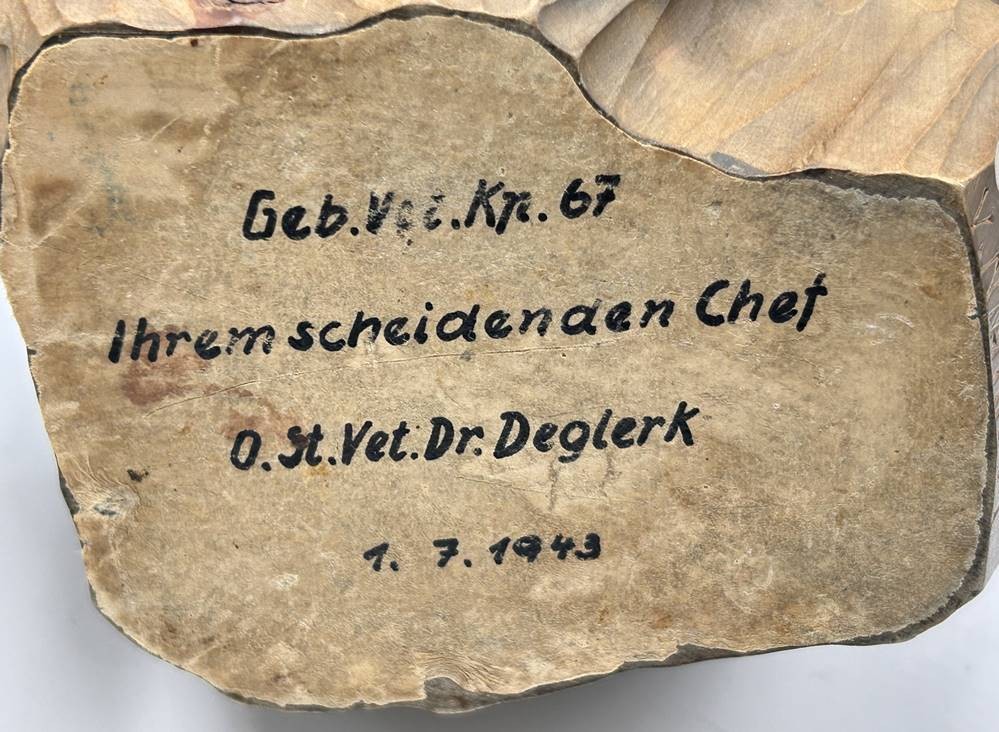 Geb. Vet. Kp. 67
Ihrem scheidenden Chef
O. St. Vet. Dr. Deglerk
1. 7. 1943